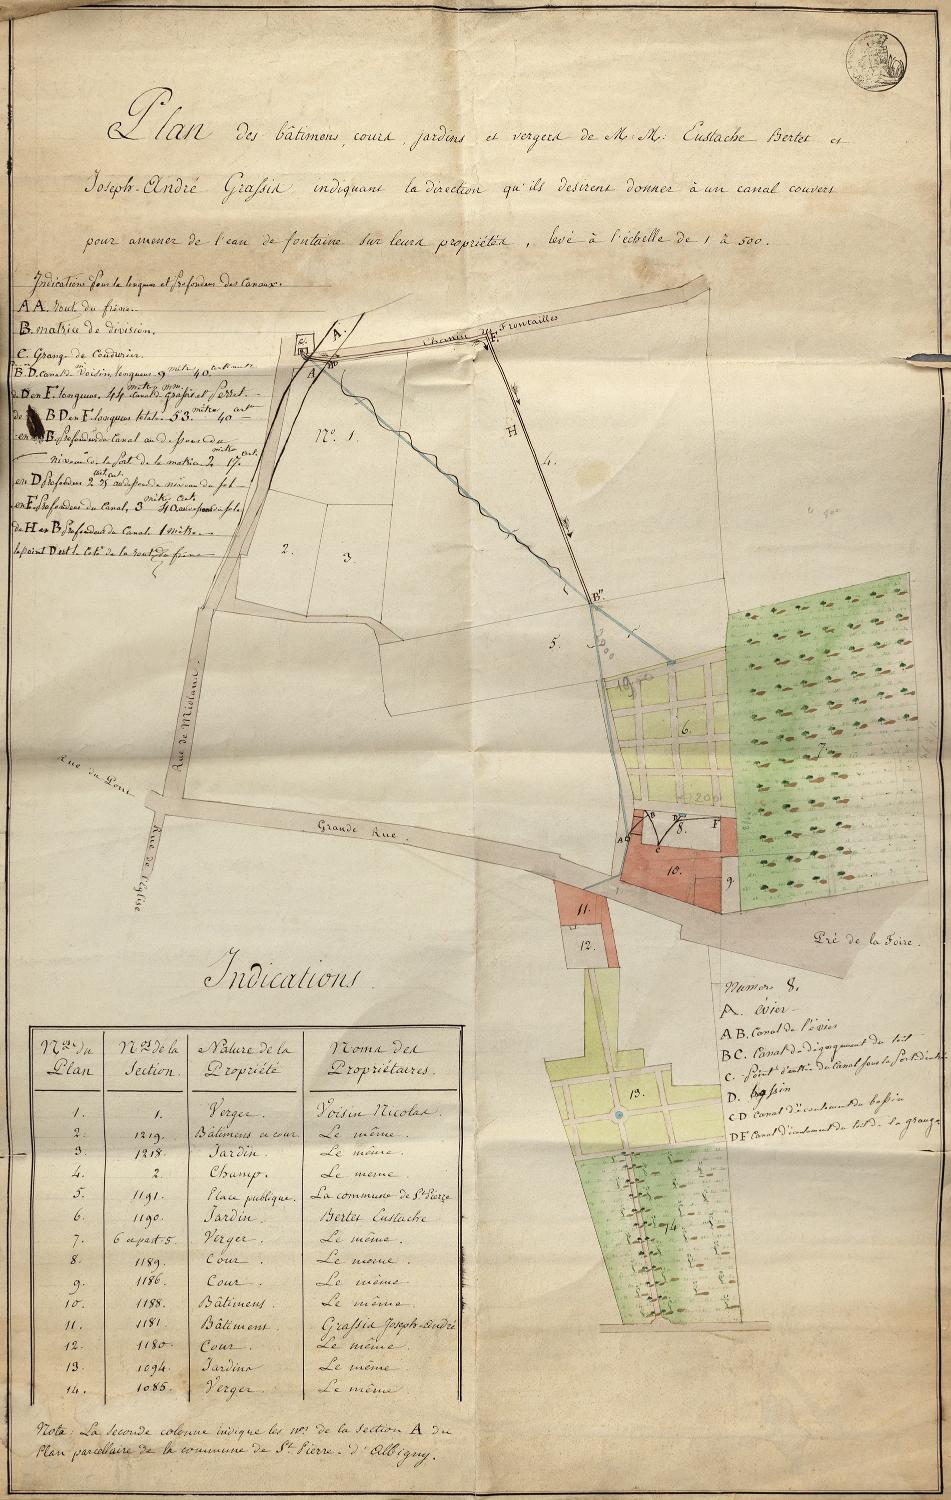 Plan des bâtimens, cours, jardins et vergers de M. M. Eustache Bertet et
Joseph-André Grassis indiquant la direction qu'ils desirent donner à un canal couvert
pour amener de l'eau de fontaine sur leurs propriétés, levé à l'échelle de 1 à 500.
Indications pour la longueur et profondeur des Canaux.
A A. Rout du frêne.
B. matrice de division.
C. Grange de Coudurier.
B. D. canal de Voisin, longueur 9 mètr 40 cent
D en F. longueur. 44 mètr Canal de grassis et Perret.
de B D en F longueur totale. 53 mètre 40 cent
en B. Profondeur du Canal au dessous du
niveau de la Port de la matrice 2 mètre 17 cent.
en D Profondeur 2 25 au dessous du niveau du sol
en F. Profondeur du Canal, 3 mètr 40 cent. au dessous du sol
de H en B Profondeur du Canal 1 mètre
le point D est le coté de la rout du frêne
A.
C.
B
A
D
Chemin des Frontailles
F.
H
N.º 1.
2.
3.
4.
B".
5.
6.
7.
8.
A
B
C
D
F
9.
10.
11.
12.
13.
14
Rue de Miolans.
Rue du Pont
Rue de l'Église
Grande Rue.
Pré de la Foire.
Numero 8.
A. évier
A B. Canal de l'évier
B C. Canal de dégorgement du toit
C. Point d'entrée du Canal sous la Port d'entrée
D. bassin
C D Canal d'écoulement du bassin
D F Canal d'écoulement du toit de la grange
Indications.
Nos. du Plan | Nos. de la Section. | Nature de la Propriété. | Noms des Propriétaires.
1. 1. Verger. Voisin Nicolas.
2. 1219. Bâtimens et cour. Le même.
3. 1218. Jardin. Le même.
4. 2. Champ. Le même.
5. 1191. Place publique. La commune de St. Pierre
6. 1190. Jardin. Bertet Eustache
7. 6 et part 5. Verger. Le même.
8. 1189. Cour. Le même.
9. 1186. Cour. Le même
10. 1188. Bâtimens. Le même.
11. 1181. Bâtiment. Grassis Joseph-André
12. 1180. Cour. Le même.
13. 1094. Jardins Le même
14. 1085. Verger. Le même.
Nota: La seconde colonne indique les nos. de la section A du
Plan parcellaire de la commune de St. Pierre-d'Albigny.